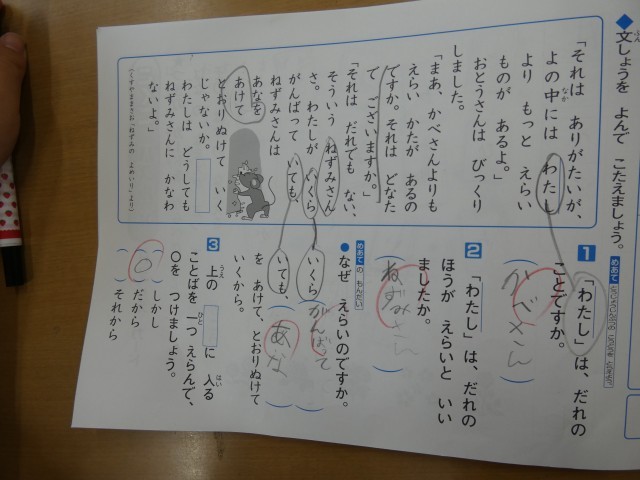 ◆文しょうを よんで こたえましょう。
「それは ありがたいが、
よの中には わたし
より もっと えらい
ものが あるよ。」
おとうさんは びっくり
しました。
「まあ、かべさんよりも
えらい かたが あるの
ですか。それは どなた
で ございますか。」
「それは だれでも ない、
そういう ねずみさん
さ。わたしが いくら
がんばって いても、
ねずみさんは
あなを
あけて
とおりぬけて いく
じゃないか。
わたしは どうしても
ねずみさんに かなわ
ないよ。」
1 「わたし」は、だれの
ことですか。
かべさん
2 「わたし」は、だれの
ほうが えらいと いい
ましたか。
ねずみさん
めあての もんだい
● なぜ えらいのですか。
いくら がんばって
いても、 あな
を あけて、とおりぬけて
いくから。
3 上の に 入る
ことばを 一つ えらんで、
○を つけましょう。
しかし
○ だから
それから